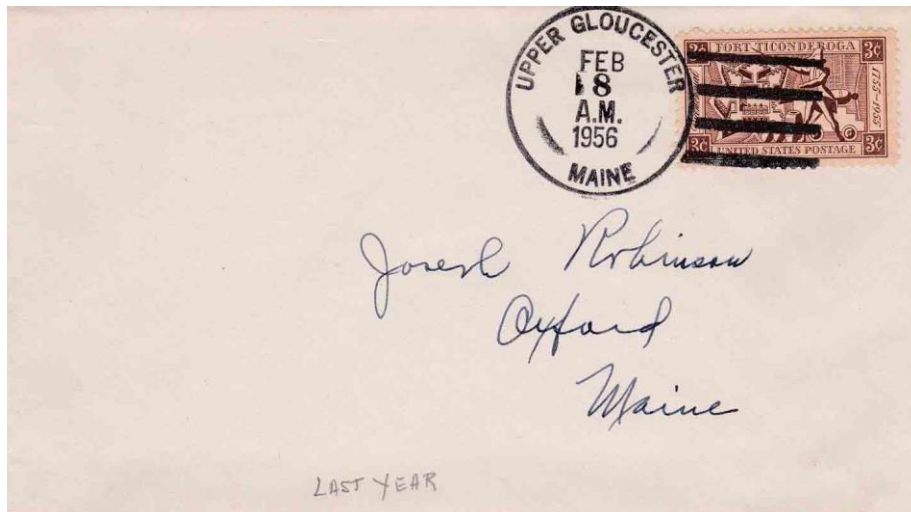 UPPER GLOUCESTER
FEB
18
A.M.
1956
MAINE
3¢ FORT TICONDEROGA 3¢
1755-1955
3¢ UNITED STATES POSTAGE 3¢
Joseph Robinson
Oxford
Maine
LAST YEAR